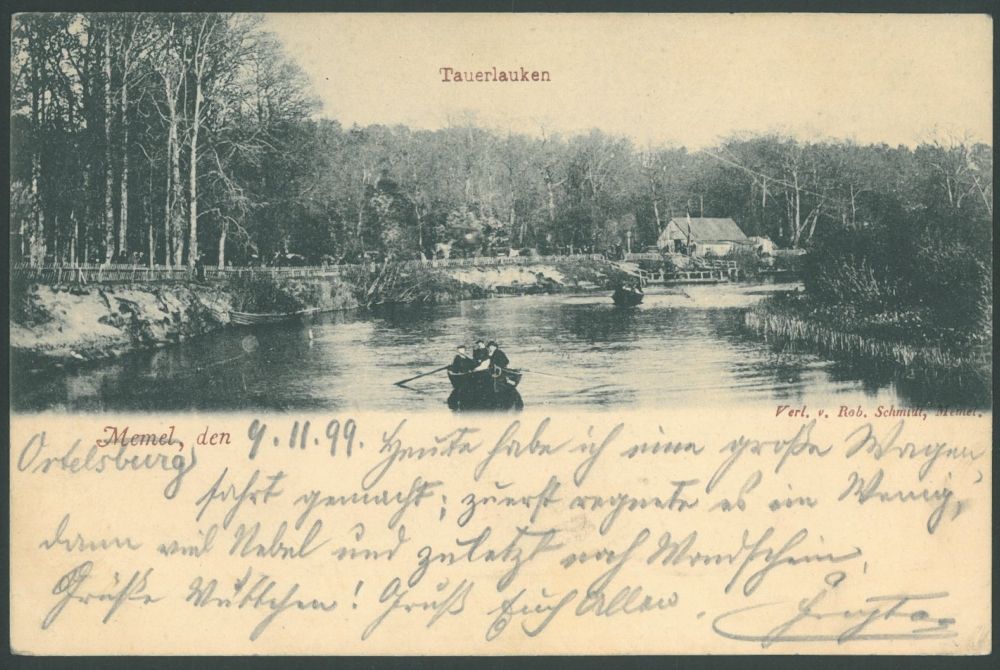 Tauerlauken
Verl. v. Rob. Schmidt, Memel.
Memel, den 9.11.99. Heute habe ich eine große Wagen
Ortelsburg
fahrt gemacht; zuerst regnete es ein Wenig,
dann viel Nebel und zuletzt noch Mondschein.
Grüße Muttchen! Gruß Euch Allen.